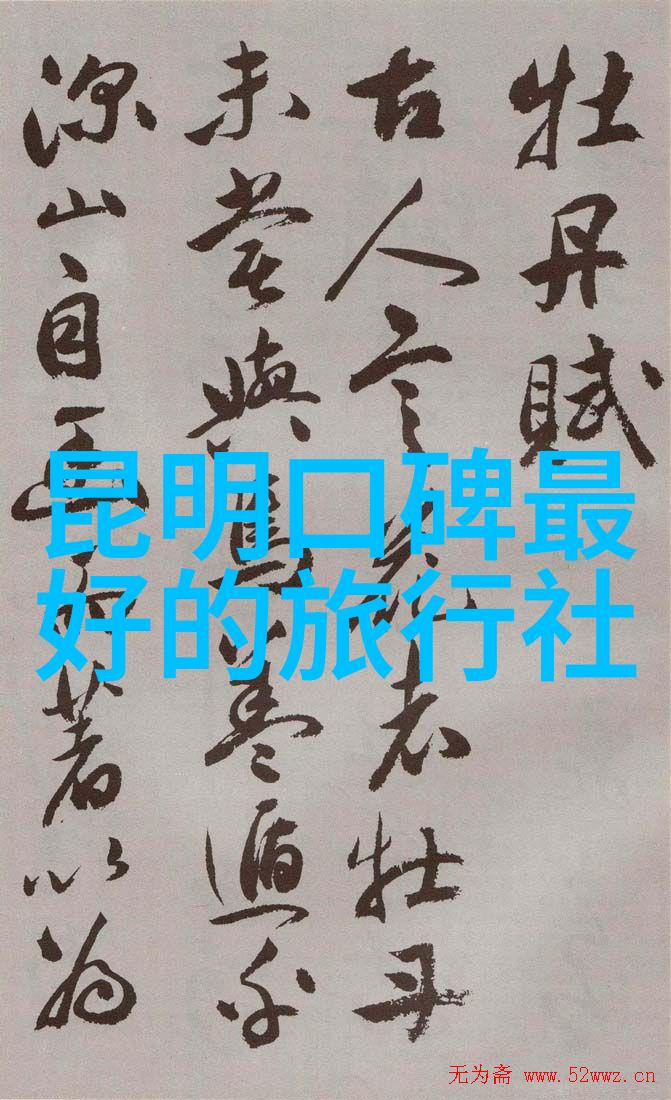 牡丹賦
古人言花者牡丹
未嘗與焉盖遁
深山自幽而著以為
昆明口碑最
好的旅行社
无为斋 www.52wwz.cn